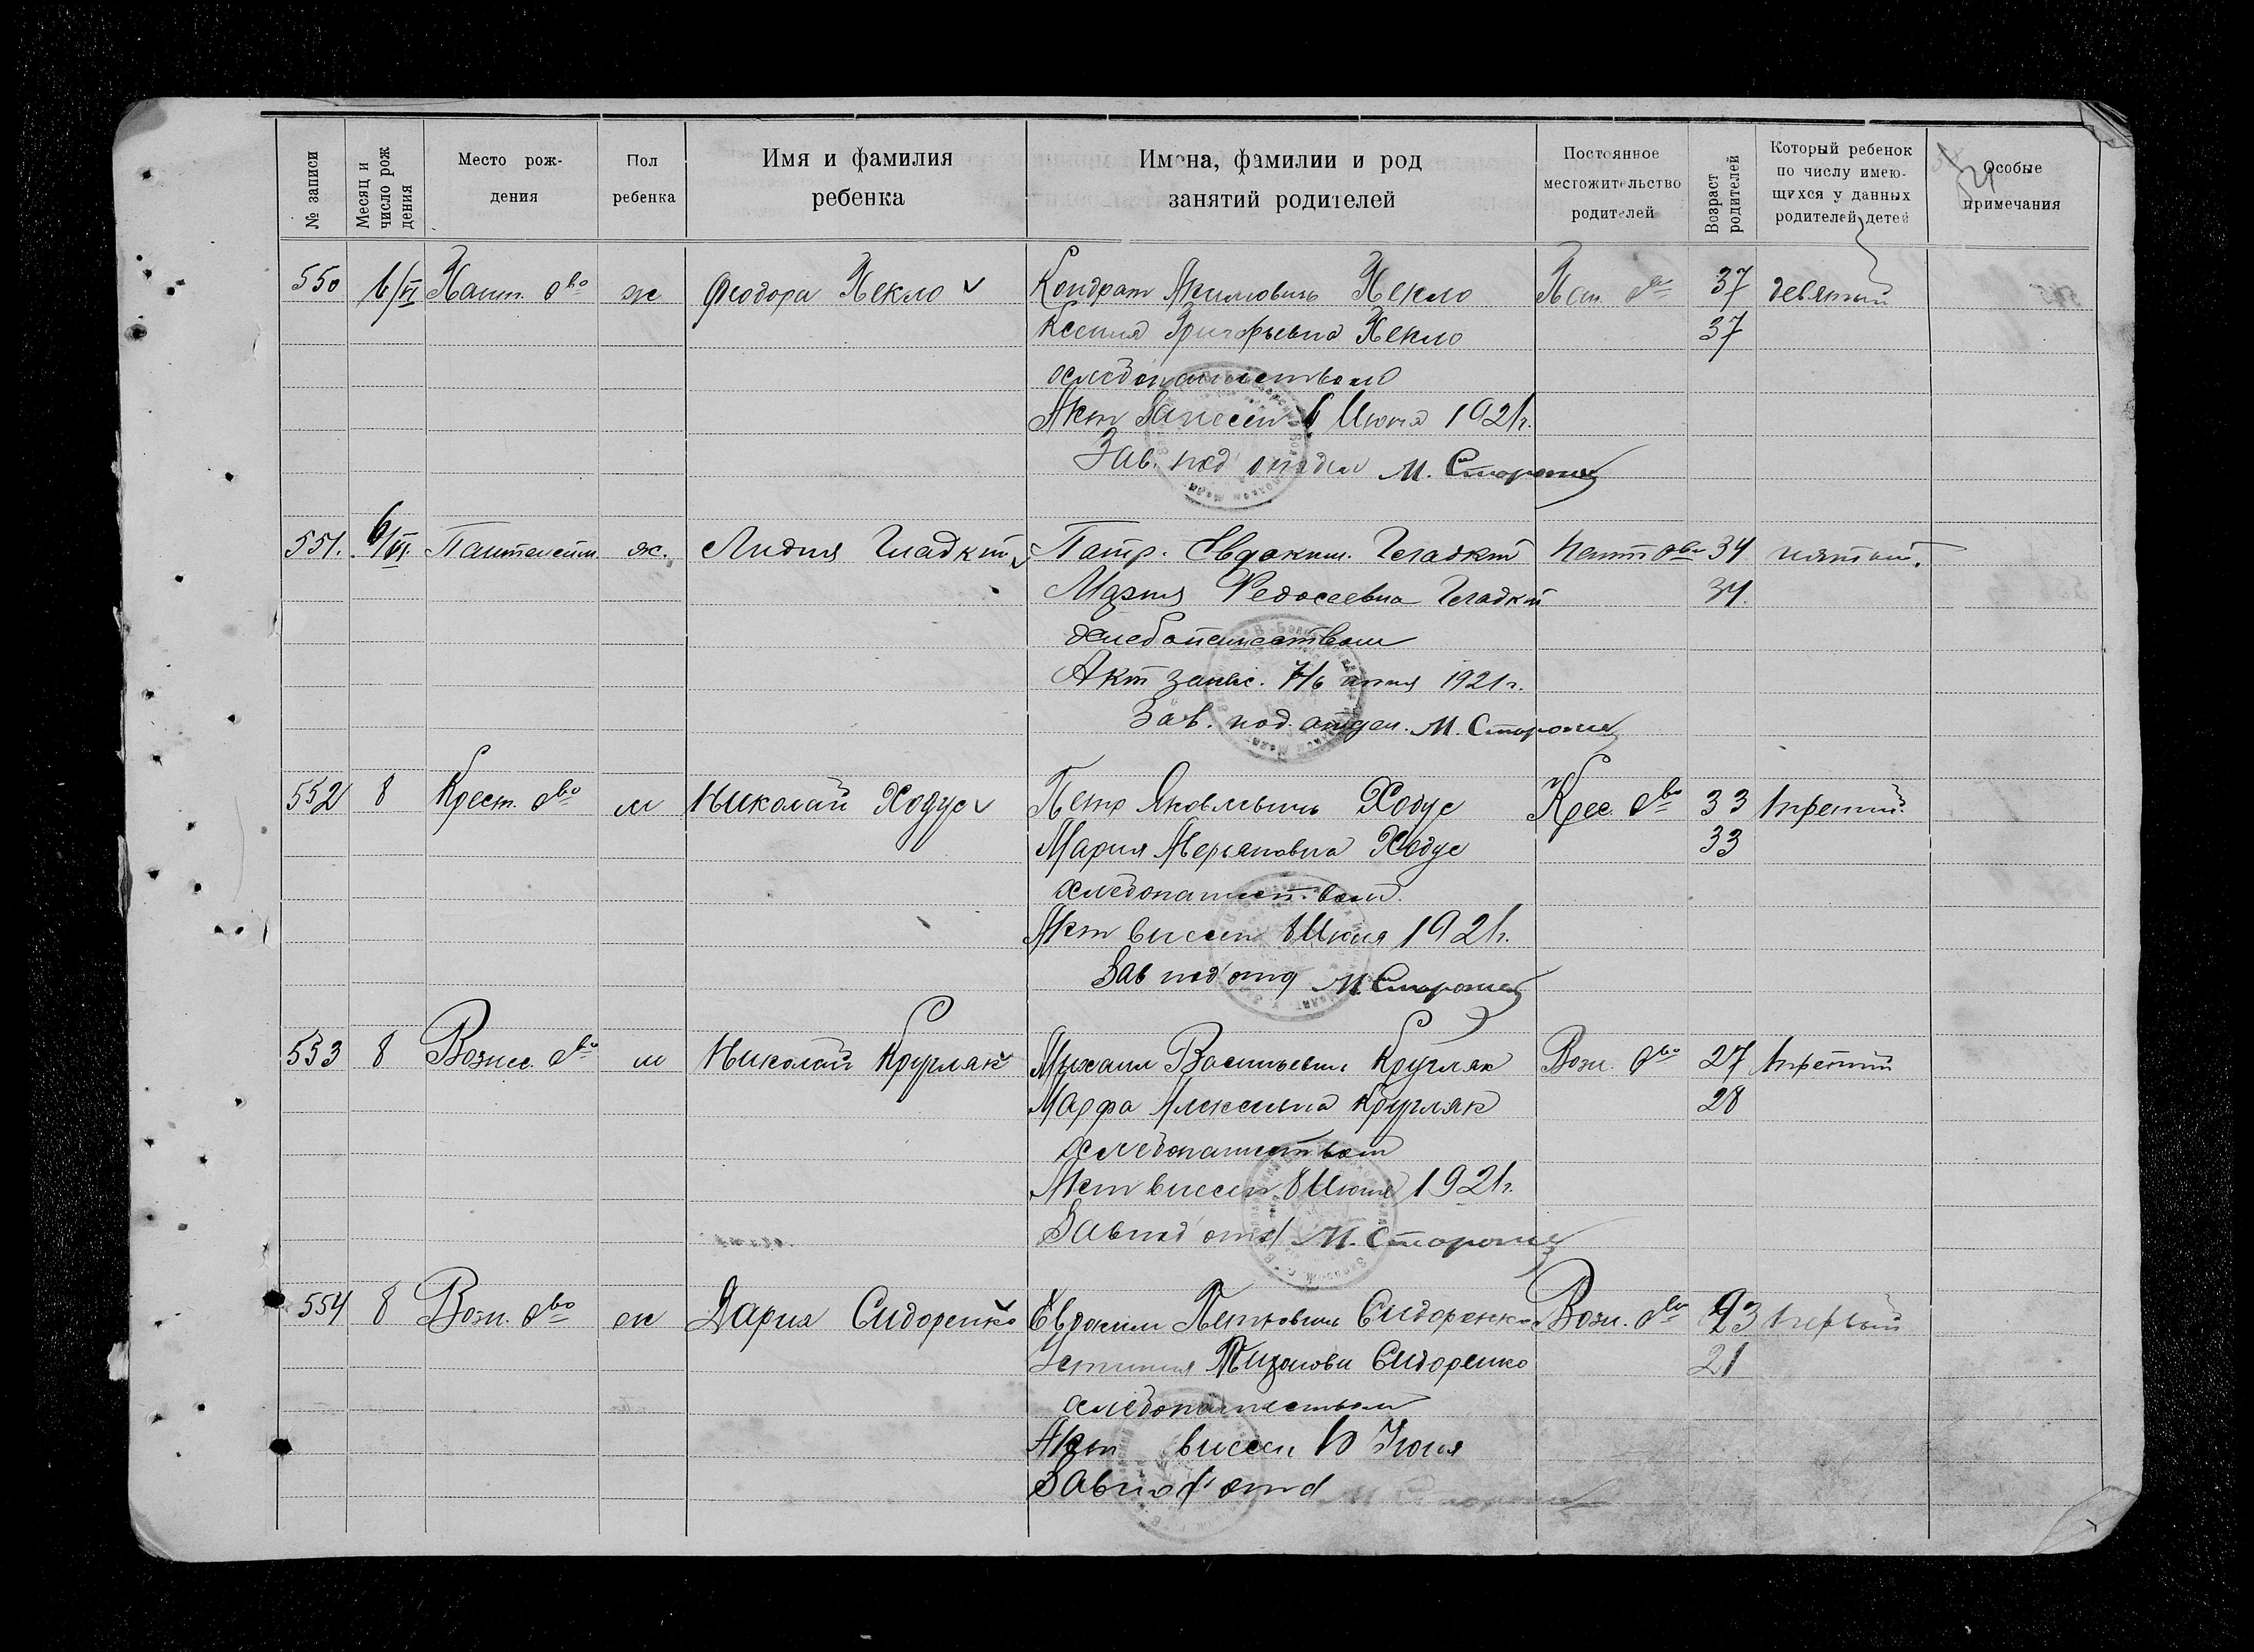 № записи
Месяц и число рож дения
Место рож-
дения
Пол
ребенка
Имя и фамилия
ребенка
Имена, фамилии и род
занятий родителей
Постоянное
местожительство
родителей
Возраст родителей
Который ребенок
по числу имею-
щихся у данных
родителей детей
Особые
примечания
550 6/VI Пант. о-во ж Феодора Пекло Кондрат Акимович Пекло Пан. о-во 37 девятый
Ксения Григорьевна Пекло 37
хлебопашеством
Акт занесен 6 Июня 1921г.
Зав. под отдел М.
551. 6/VI. Пантелейм. ж. Лидия Гладкий Патр. Евдоким. Гладкий Пант о-во 34 пятый.
Мария Федосеевна Гладкий 34.
хлебопашеством
Акт занес. 7/6 июня 1921г.
Зав. под. отдел. М.
552 8 Крест. о-во м Николай Ходус Петр Яковлевич Ходус Крес. о-во 33 третий
Мария Ходус 33
хлебопашест.вом.
Акт внесен 8 Июня 1921г.
Зав под отд М.
553 8 Вознес. о-во м Николай Кругляк Михаил Васильевич Кругляк Возн. о-во 27 третий
Марфа Алексеевна Кругляк 28
хлебопашеством
Акт внесен 8 Июня 1921г.
Зав под отд М.
554 8 Возн. о-во ж Дария Сидоренко Евдоким Петрович Сидоренко Возн. о-во 23 первый
Устиния Сидоренко 21
хлебопашеством
Акт внесен 10 Июня
Зав под отд М.